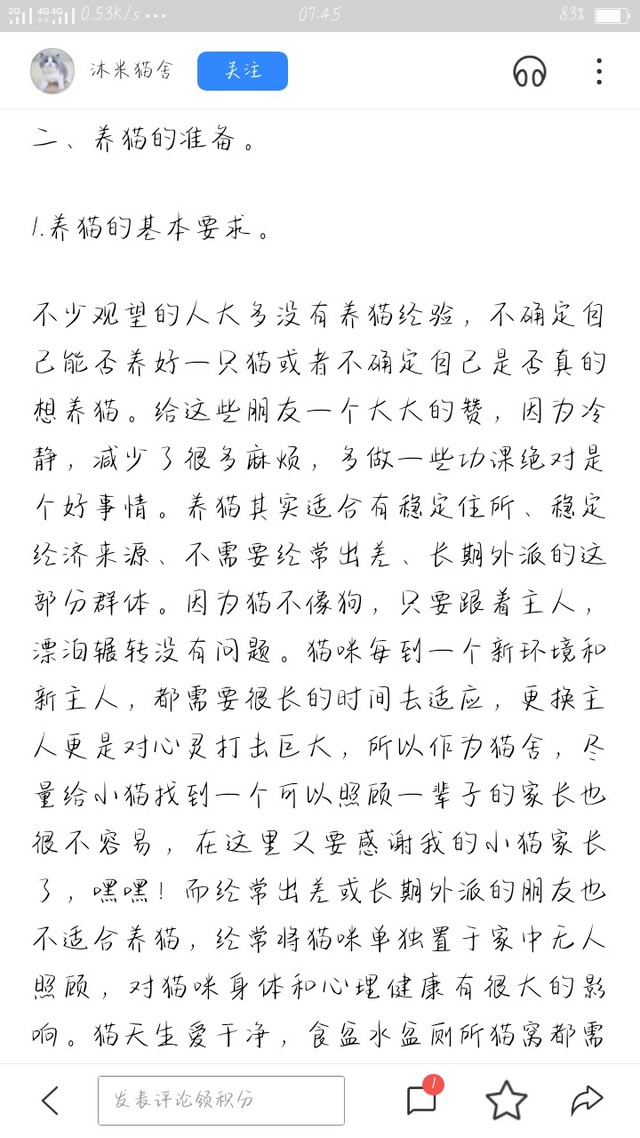 2G 4G4G 0.53K/s ... 07:45 83%
沐米猫舍 关注
二、养猫的准备。
1.养猫的基本要求。
不少观望的人大多没有养猫经验，不确定自
己能否养好一只猫或者不确定自己是否真的
想养猫。给这些朋友一个大大的赞，因为冷
静，减少了很多麻烦，多做一些功课绝对是
个好事情。养猫其实适合有稳定住所、稳定
经济来源、不需要经常出差、长期外派的这
部分群体。因为猫不像狗，只要跟着主人，
漂泊辗转没有问题。猫咪每到一个新环境和
新主人，都需要很长的时间去适应，更换主
人更是对心灵打击巨大，所以作为猫舍，尽
量给小猫找到一个可以照顾一辈子的家长也
很不容易，在这里又要感谢我的小猫家长
了，嘿嘿！而经常出差或长期外派的朋友也
不适合养猫，经常将猫咪单独置于家中无人
照顾，对猫咪身体和心理健康有很大的影
响。猫天生爱干净，食盆水盆厕所猫窝都需
发表评论领积分 1